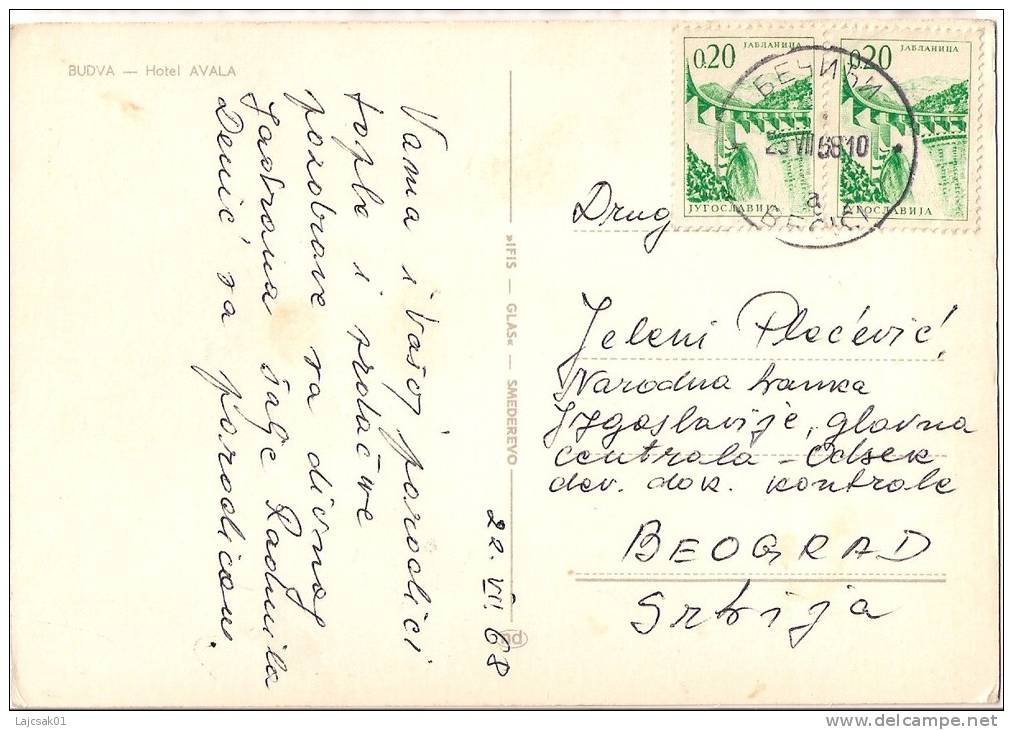 BUDVA — Hotel AVALA
22. VII. 68
Vama i Vašoj porodici
tople i srdačne
pozdrave sa divnog
Jadrana šalje Radmila
Denić sa porodicom.
»IFIS — GLAS« — SMEDEREVO
0.20
ЈАБЛАНИЦА
ЈУГОСЛАВИЈА
0.20
ЈАБЛАНИЦА
ЈУГОСЛАВИЈА
БЕЧИЋИ
23 VII 68 10
a
BEČIĆI
Drug
Jeleni Plećević,
Narodna banka
Jugoslavije, glavna
centrala - Odsek
dev. dok. kontrole
BEOGRAD
Srbija
Lajcsak01
delcampe.net